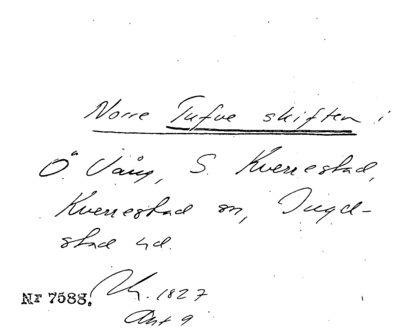 Norre Tufve skiften i
Ö. Vång, S. Kverrestad,
Kverrestad sn, Ingel-
stad hd.
Nr 7588. 1827
Akt 9